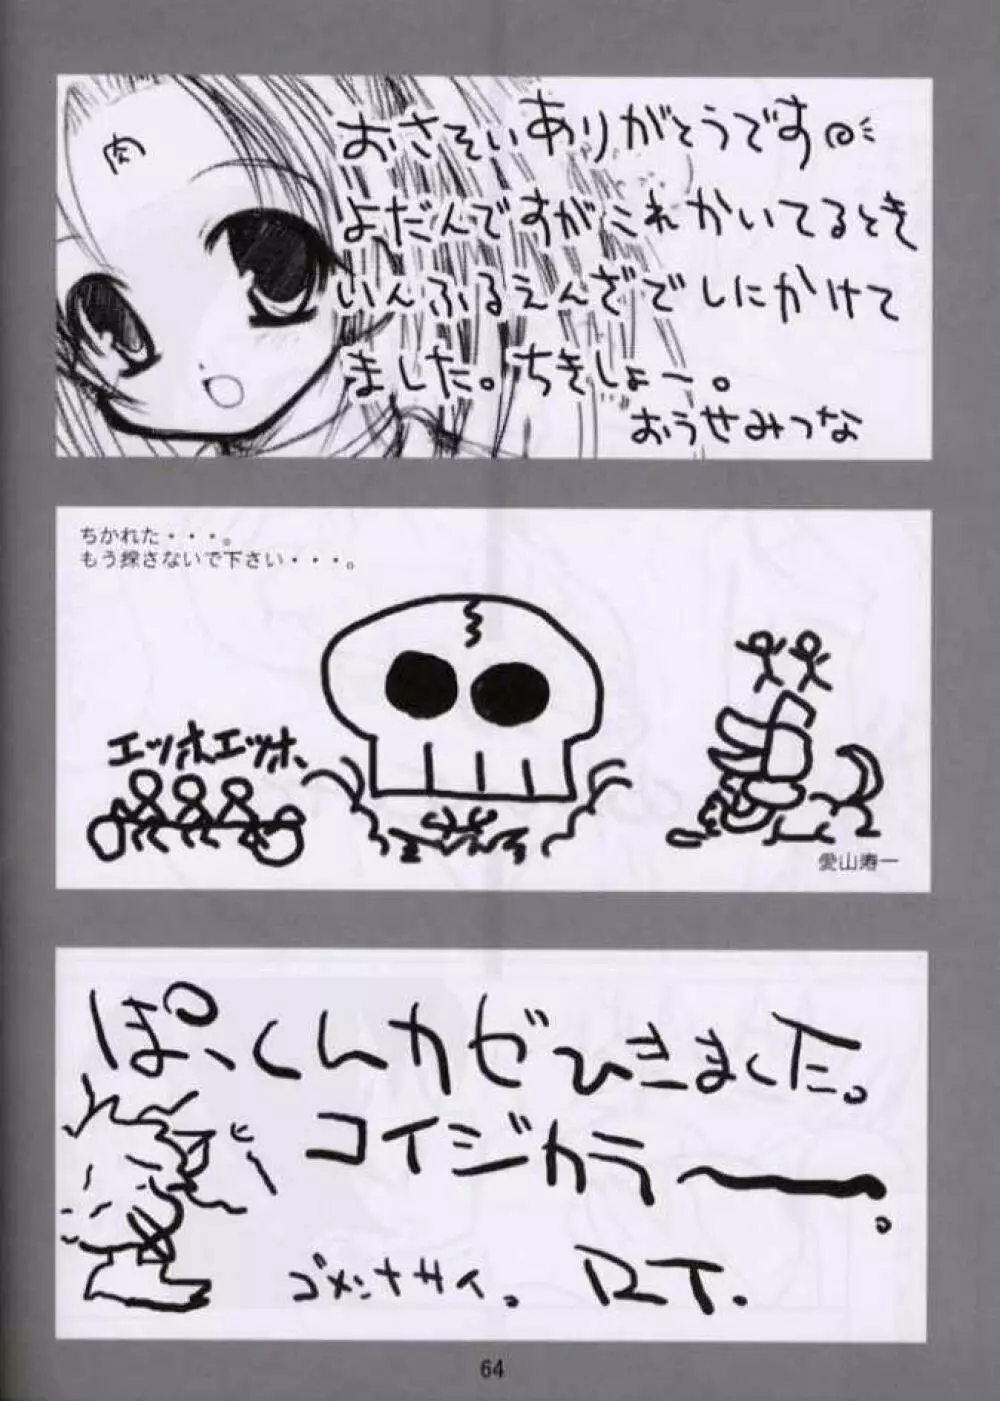 肉
おさそいありがとうです
よだんですがこれかいてるとき
いんふるえんざでしにかけて
ました。ちきしょー。
おうせみつな
ちかれた・・・。
もう探さないで下さい・・・。
エッホエッホ、
愛山寿一
ぼくんカゼひきました。
コイジカラー。
ゴメンナサイ。 RT.